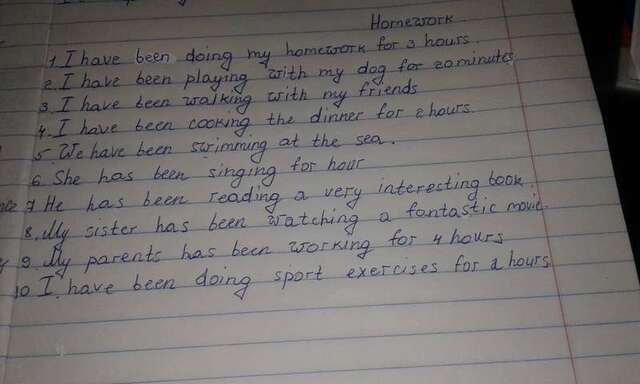 Homework
1. I have been doing my homework for 3 hours.
2. I have been playing with my dog for 20 minutes
3. I have been walking with my friends
4. I have been cooking the dinner for 2 hours
5. We have been swimming at the sea.
6. She has been singing for hour
7 He has been reading a very interesting book.
8. My sister has been watching a fantastic movie.
9. My parents has been working for 4 hours
10 I have been doing sport exercises for 2 hours